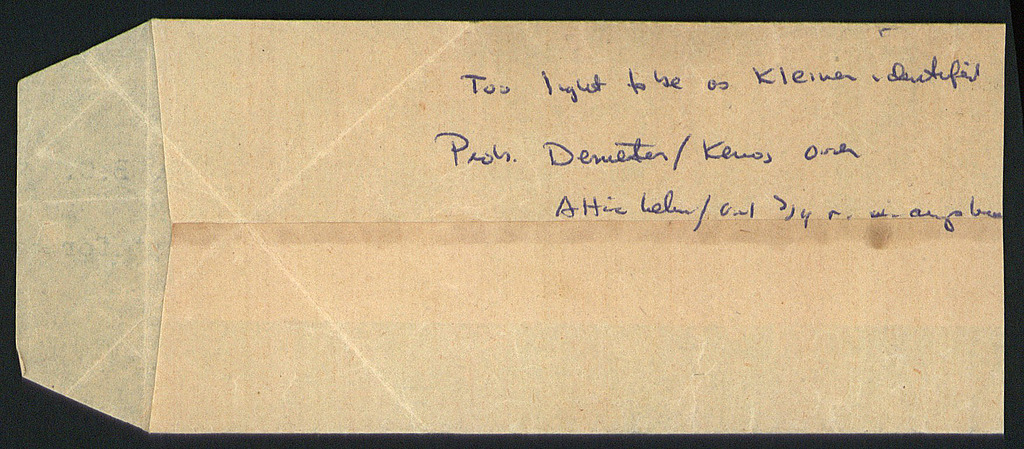 Too light to be as Kleiner identified
Prob. Demeter/Kenos over
Attic helm/owl 3/4 r. w. amphora